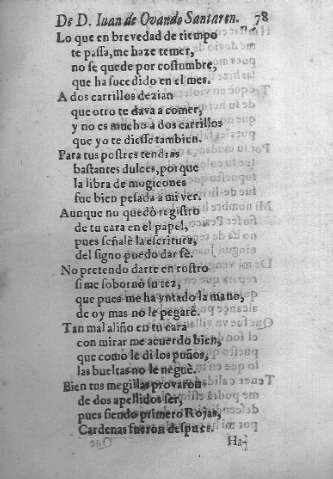 De D. Iuan de Ouando Santaren. 78
Lo que en brevedad de tiempo
te passa, me haze temer,
no se quede por costumbre,
que ha sucedido en el mes.
A dos carrillos dezian
que otro te dava a comer,
y no es mucho a dos carrillos
que yo te diesse tambien.
Para tus postres tendras
bastantes dulces, porque
la libra de mogicones
fue bien pesada a mi ver.
Aunque no quedò registro
de tu cara en el papel,
pues señalè la escritura,
del signo puedo dar fè.
No pretendo darte en rostro
si me sobornò su tez,
que pues me ha vntado la mano,
de oy mas no le pegarè.
Tan mal aliño en tu cara
con mirar me acuerdo bien,
que como le di los puños,
las bueltas no le neguè.
Bien tus megillas provaron
de dos apellidos ser,
pues siendo primero Rojas,
Cardenas fueron despues.
Ha-